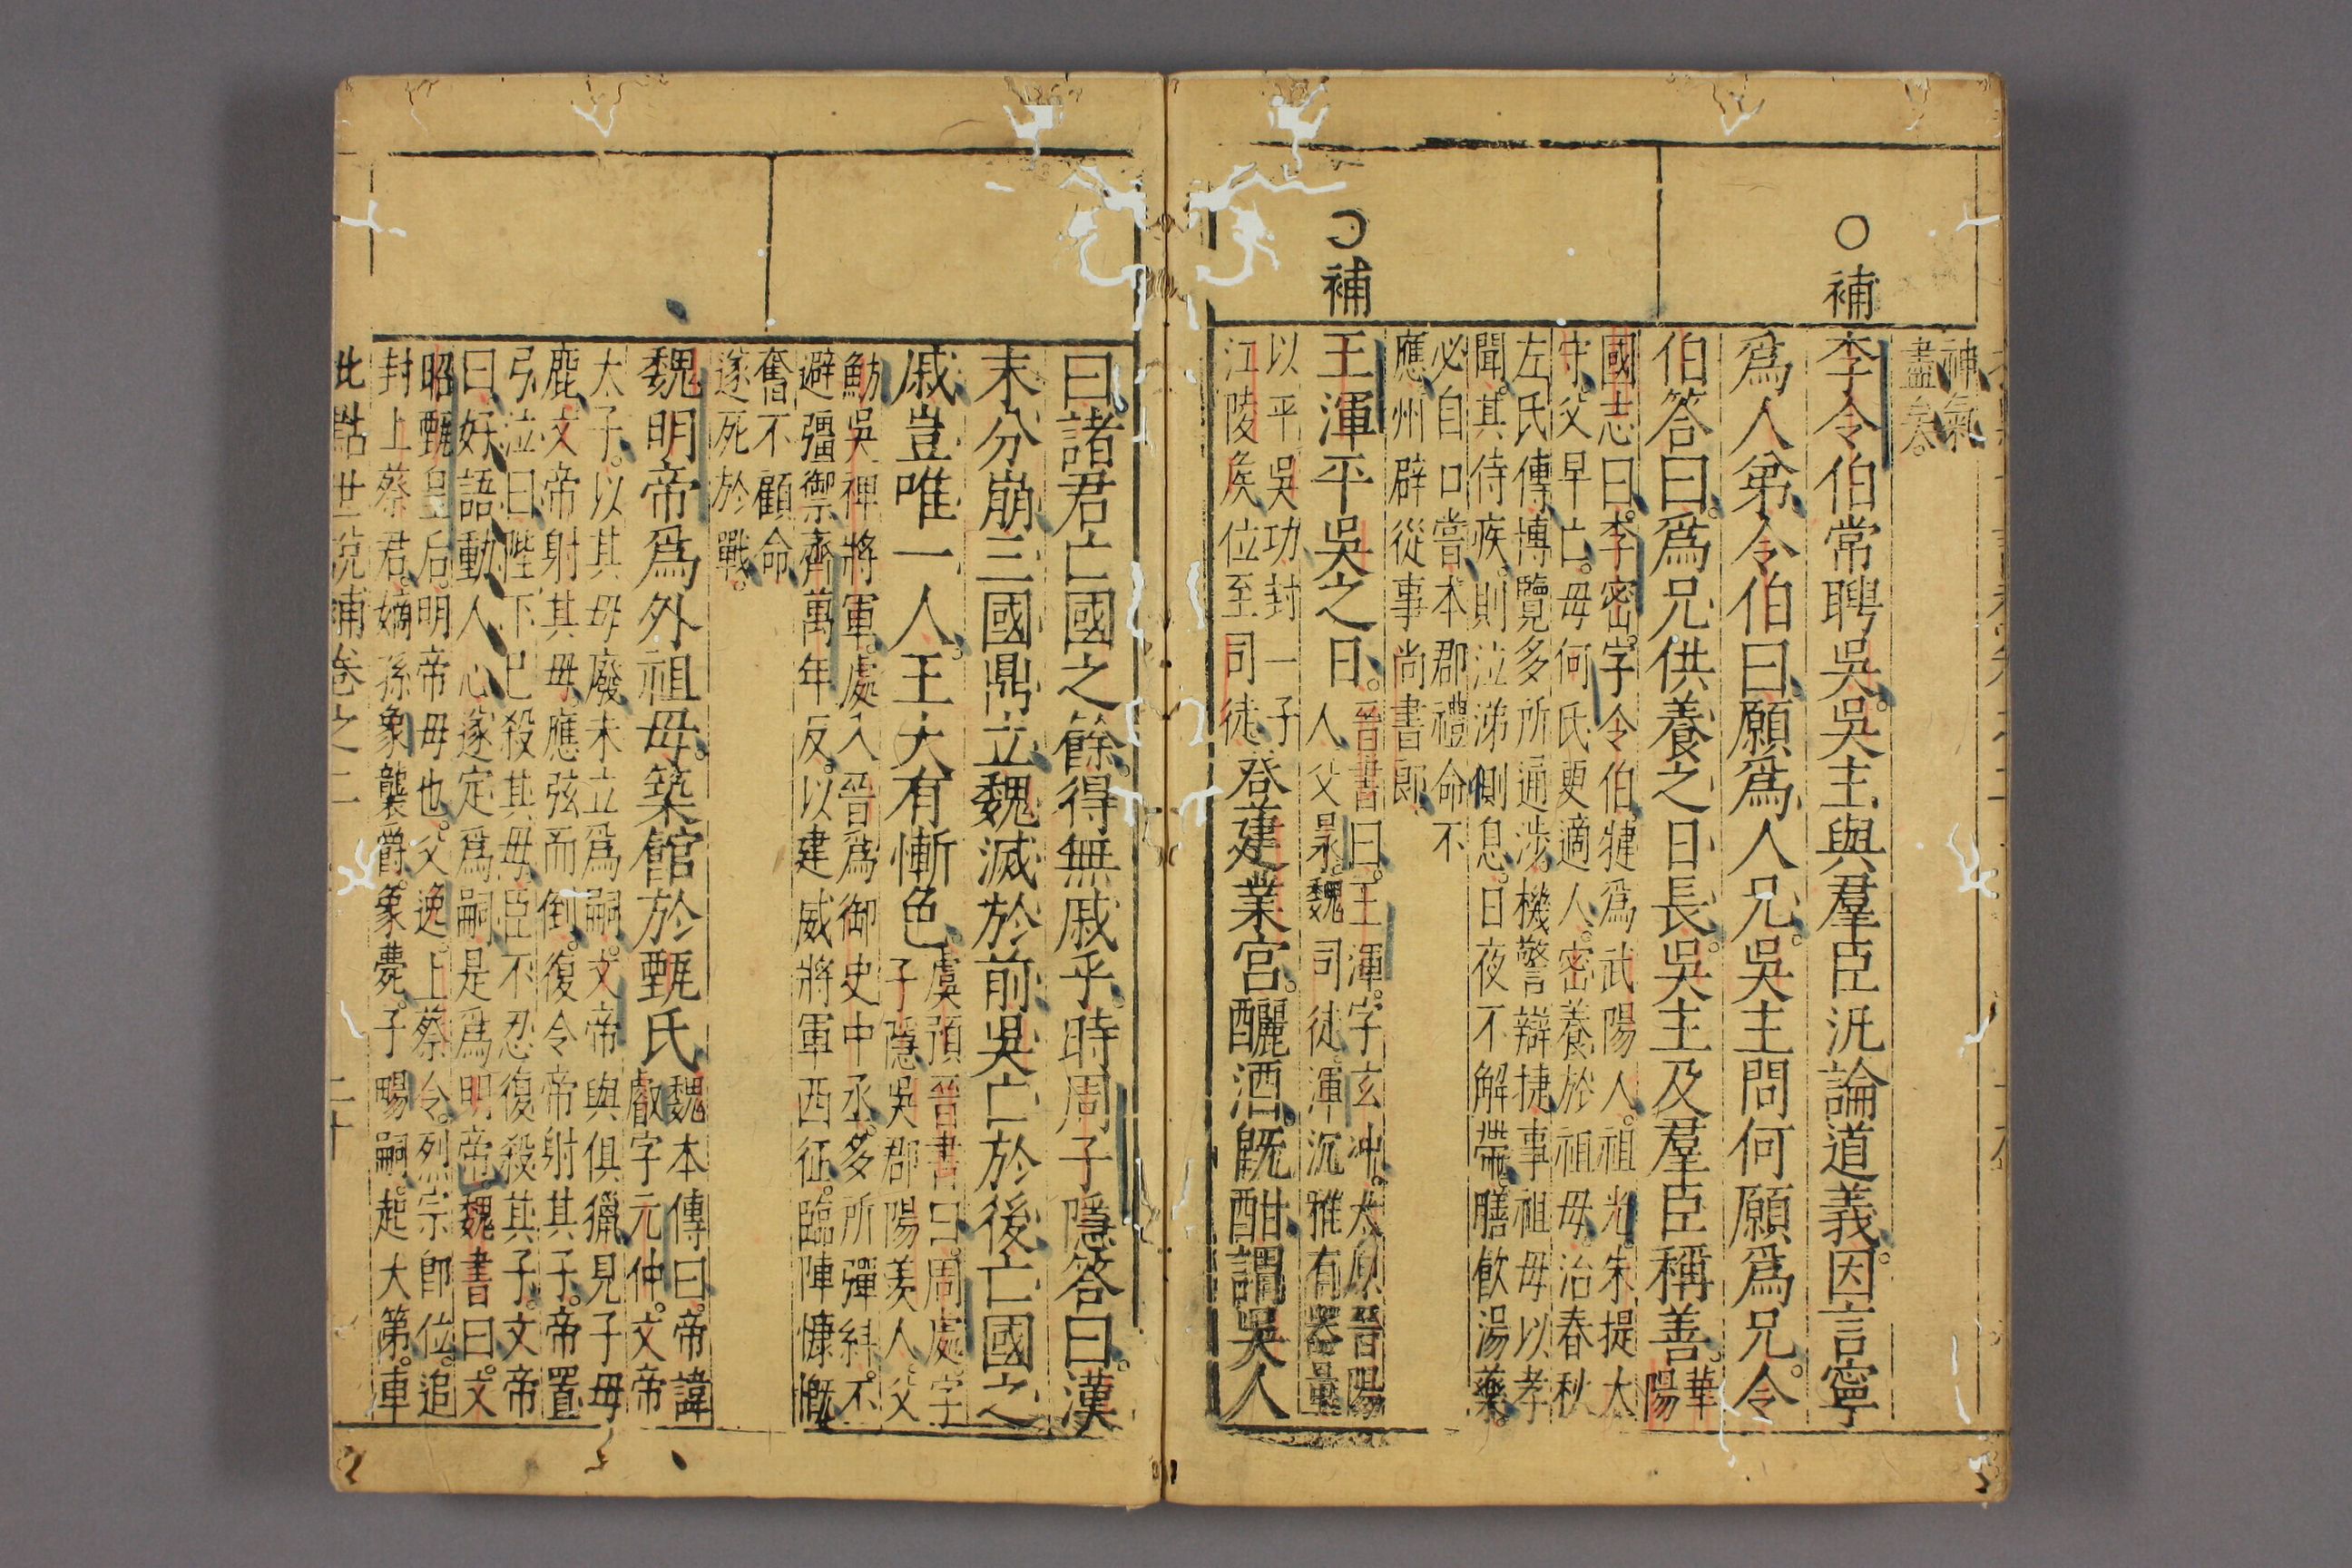 神氣
盡矣。
○補
李令伯常聘吳。吳主與羣臣汎論道義。因言寧
爲人弟。令伯曰。願爲人兄。吳主問何願爲兄。令
伯答曰。爲兄供養之日長。吳主及羣臣稱善。華
陽
國志曰。李密。字令伯。犍爲武陽人。祖光。朱提太
守。父早亡。母何氏更適人。密養於祖母。治春秋
左氏傳。博覽多所通涉。機警辯捷。事祖母以孝
聞。其侍疾。則泣涕側息。日夜不解帶。膳飲湯藥。
必自口嘗。本郡禮命不
應。州辟從事尚書郎。
○補
王渾平吳之日。晉書曰。王渾。字玄冲。太原晉陽
人。父㫤。魏司徒。渾沉雅有器量
以平吳功。封一子
江陵侯。位至司徒
登建業宮。釃酒。既酣。謂吳人
曰。諸君亡國之餘。得無戚乎。時周子隱答曰。漢
末分崩。三國鼎立。魏滅於前。吳亡於後。亡國之
戚。豈唯一人。王大有慚色。虞預晉書曰。周處。字
子隱。吳郡陽羨人。父
魴。吳裨將軍。處入晉爲御史中丞。多所彈糾。不
避彊禦。齊萬年反。以建威將軍西征。臨陣慷慨
奮不顧命。
遂死於戰。
魏明帝爲外祖母。築館於甄氏。魏本傳曰。帝諱
叡字元仲。文帝
太子。以其母廢未立爲嗣。文帝與俱獵。見子母
鹿。文帝射其母。應弦而倒。復令帝射其子。帝置
弓泣曰。陛下巳殺其母。臣不忍復殺其子。文帝
曰。好語動人心。遂定爲嗣。是爲明帝。魏書曰。文
昭甄皇后。明帝母也。父逸。上蔡令。烈宗即位。追
封上蔡君。嫡孫象襲爵。象薨。子暢嗣。起大第。車
批點世說補卷之二　二十